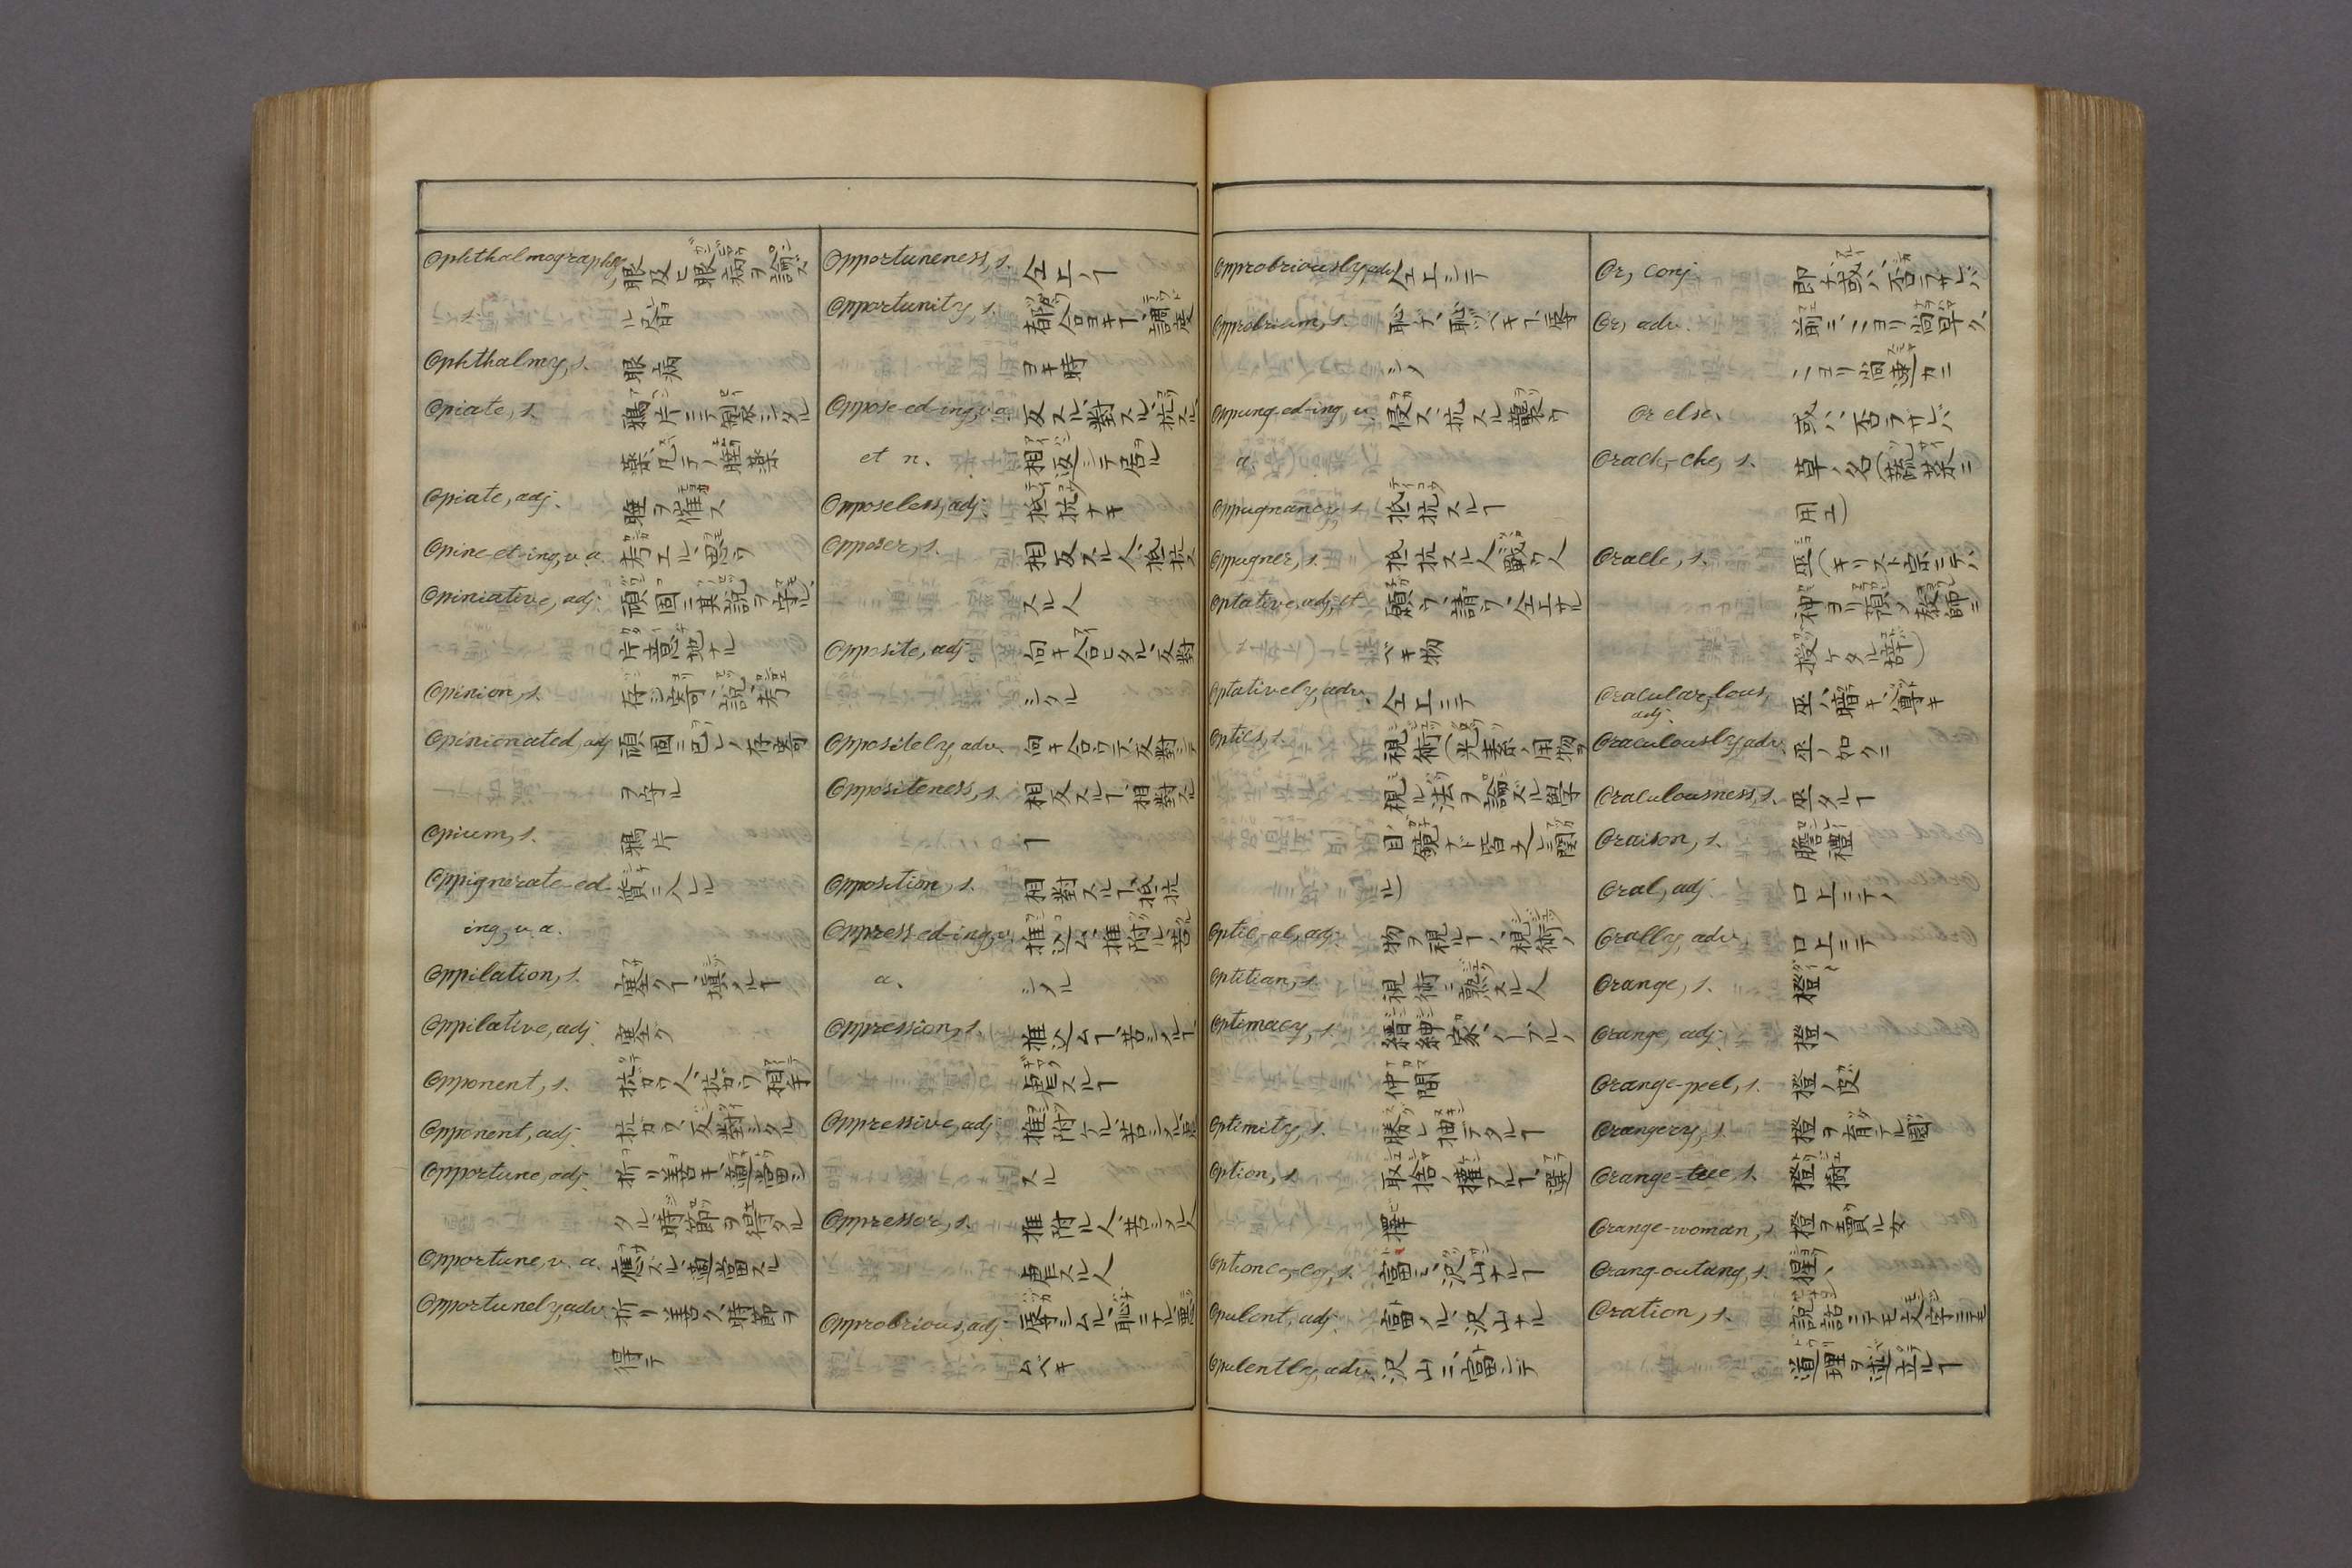 Ophthalmography, 眼及ヒ眼病ヲ論ズ
s. ル
Ophthalmy, s. 眼病
Opiate, s. 鴉片ニテ製シタル
薬、凡テノ睡薬
Opiate, adj. 睡ヲ催ス
Opine-et-ing, v. a. 考エル、思フ
Opiniative, adj. 頑固ニ其説ヲ守ル、
片意地ナル
Opinion, s. 存シ寄、説、考
Opinionated, adj. 頑固ニ己レノ存寄
ヲ守ル
Opium, s. 鴉片
Oppignorate-ed- 質ニ入レル
ing, v. a.
Oppilation, s. 塞グヿ、塡メルヿ
Oppilative, adj. 塞グ
Opponent, s. 拒ム人、相手
Opponent, adj. 反對シタル
Opportune, adj. 折リ善キ、適當シ
タル、時節ヲ得タル
Opportune, v. a. 應ズル、適當スル
Opportunely, adv. 折リ善ク、時節ヲ
得テ
Opportuneness, s. 仝上ノヿ
Opportunity, s. 都合ヨキヿ、調度
ヨキ時
Oppose-ed-ing, v. a. 反スル、對スル、抗スル、
et n. 相返シテ居ル
Opposeless, adj. 抵抗ナキ
Opposer, s. 相反スル人、抵抗
スル人
Opposite, adj. 向キ合ヒタル、反對
シタル
Oppositely, adv. 向キ合ウテ、反對シテ
Oppositeness, s. 相反スルヿ、相對スル
ヿ
Opposition, s. 相對スルヿ、抵抗
Oppress-ed-ing, v. 推込ム、推附ル、苦
a. シメル
Oppression, s. 推込ムヿ、苦シメルヿ
虐スルヿ
Oppressive, adj. 推附ケル、苦シメル、虐
スル
Oppressor, s. 推附ル人、苦シメル人
虐スル人
Opprobrious, adj. 辱シムル、恥ニナル、悪
ムベキ
Opprobriously, adv. 仝上シテ
Opprobrium, s. 恥ヂ、恥ヅベキヿ、辱
シメ
Oppung-ed-ing, v. 侵ス、抗スル、襲フ
a.
Oppugnancy, s. 抵抗スルヿ
Oppugner, s. 抵抗スル人、戰フ人
Optative, adj. et 願フ、請フ、仝上サル
ベキ物
Optatively, adv. 仝上ニテ
Optics, s. 視術(光素ノ用、物ヲ
視ル法ヲ論ズル學
目鏡ナド皆之ニ關
ル)
Optic-al, adj. 物ヲ視ルヿノ、視術ノ
Optitian, s. 視術ニ熟スル人
Optimacy, s. 縉紳家、ノーブルノ
仲間
Optimity, s. 勝レ抽テタルヿ
Option, s. 取捨ノ權アルヿ、選
擇
Optionce, cy, s. 富ミ、沢山ナルヿ
Opulent, adj. 富メル、沢山ナル
Opulently, adv. 沢山ニ、富ンデ
Or, conj. 即チ、或ハ、否ラザレバ
Or, adv. 前ニ、ニヨリ尚早ク
ニヨリ尚速カニ
Or else. 或ハ、否ラザレバ
Orach,-che, s. 草ノ名(蔬菜ニ
用エ)
Oracle, s. 巫(キリスト宗ニテハ
神ヨリ預メ教師ニ
授ケタル語)
Oracular,-lous, 巫ノ、暗キ、導キ
adj.
Oraculously adv. 巫ノ如クニ
Oraculousness, s. 巫タルヿ
Oraison, s. 膽禮
Oral, adj. 口上ニテノ
Orally, adv. 口上ニテ
Orange, s. 橙
Orange, adj. 橙ノ
Orange-peel, s. 橙ノ皮
Orangery, s. 橙ヲ育テル園
Orange-tree, s. 橙樹
Orange-woman, s. 橙ヲ賣ル女
Orang-outang, s. 猩々
Oration, s. 説話ニテモ文字ニテモ
道理ヲ述立ルヿ